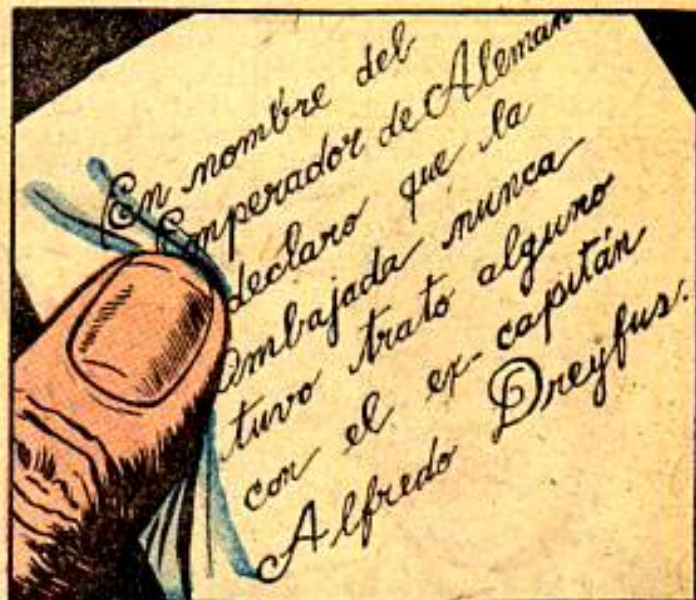 En nombre del
Emperador de Aleman
declaro que la
embajada nunca
tuvo trato alguno
con el ex-capitán
Alfredo Dreyfus.